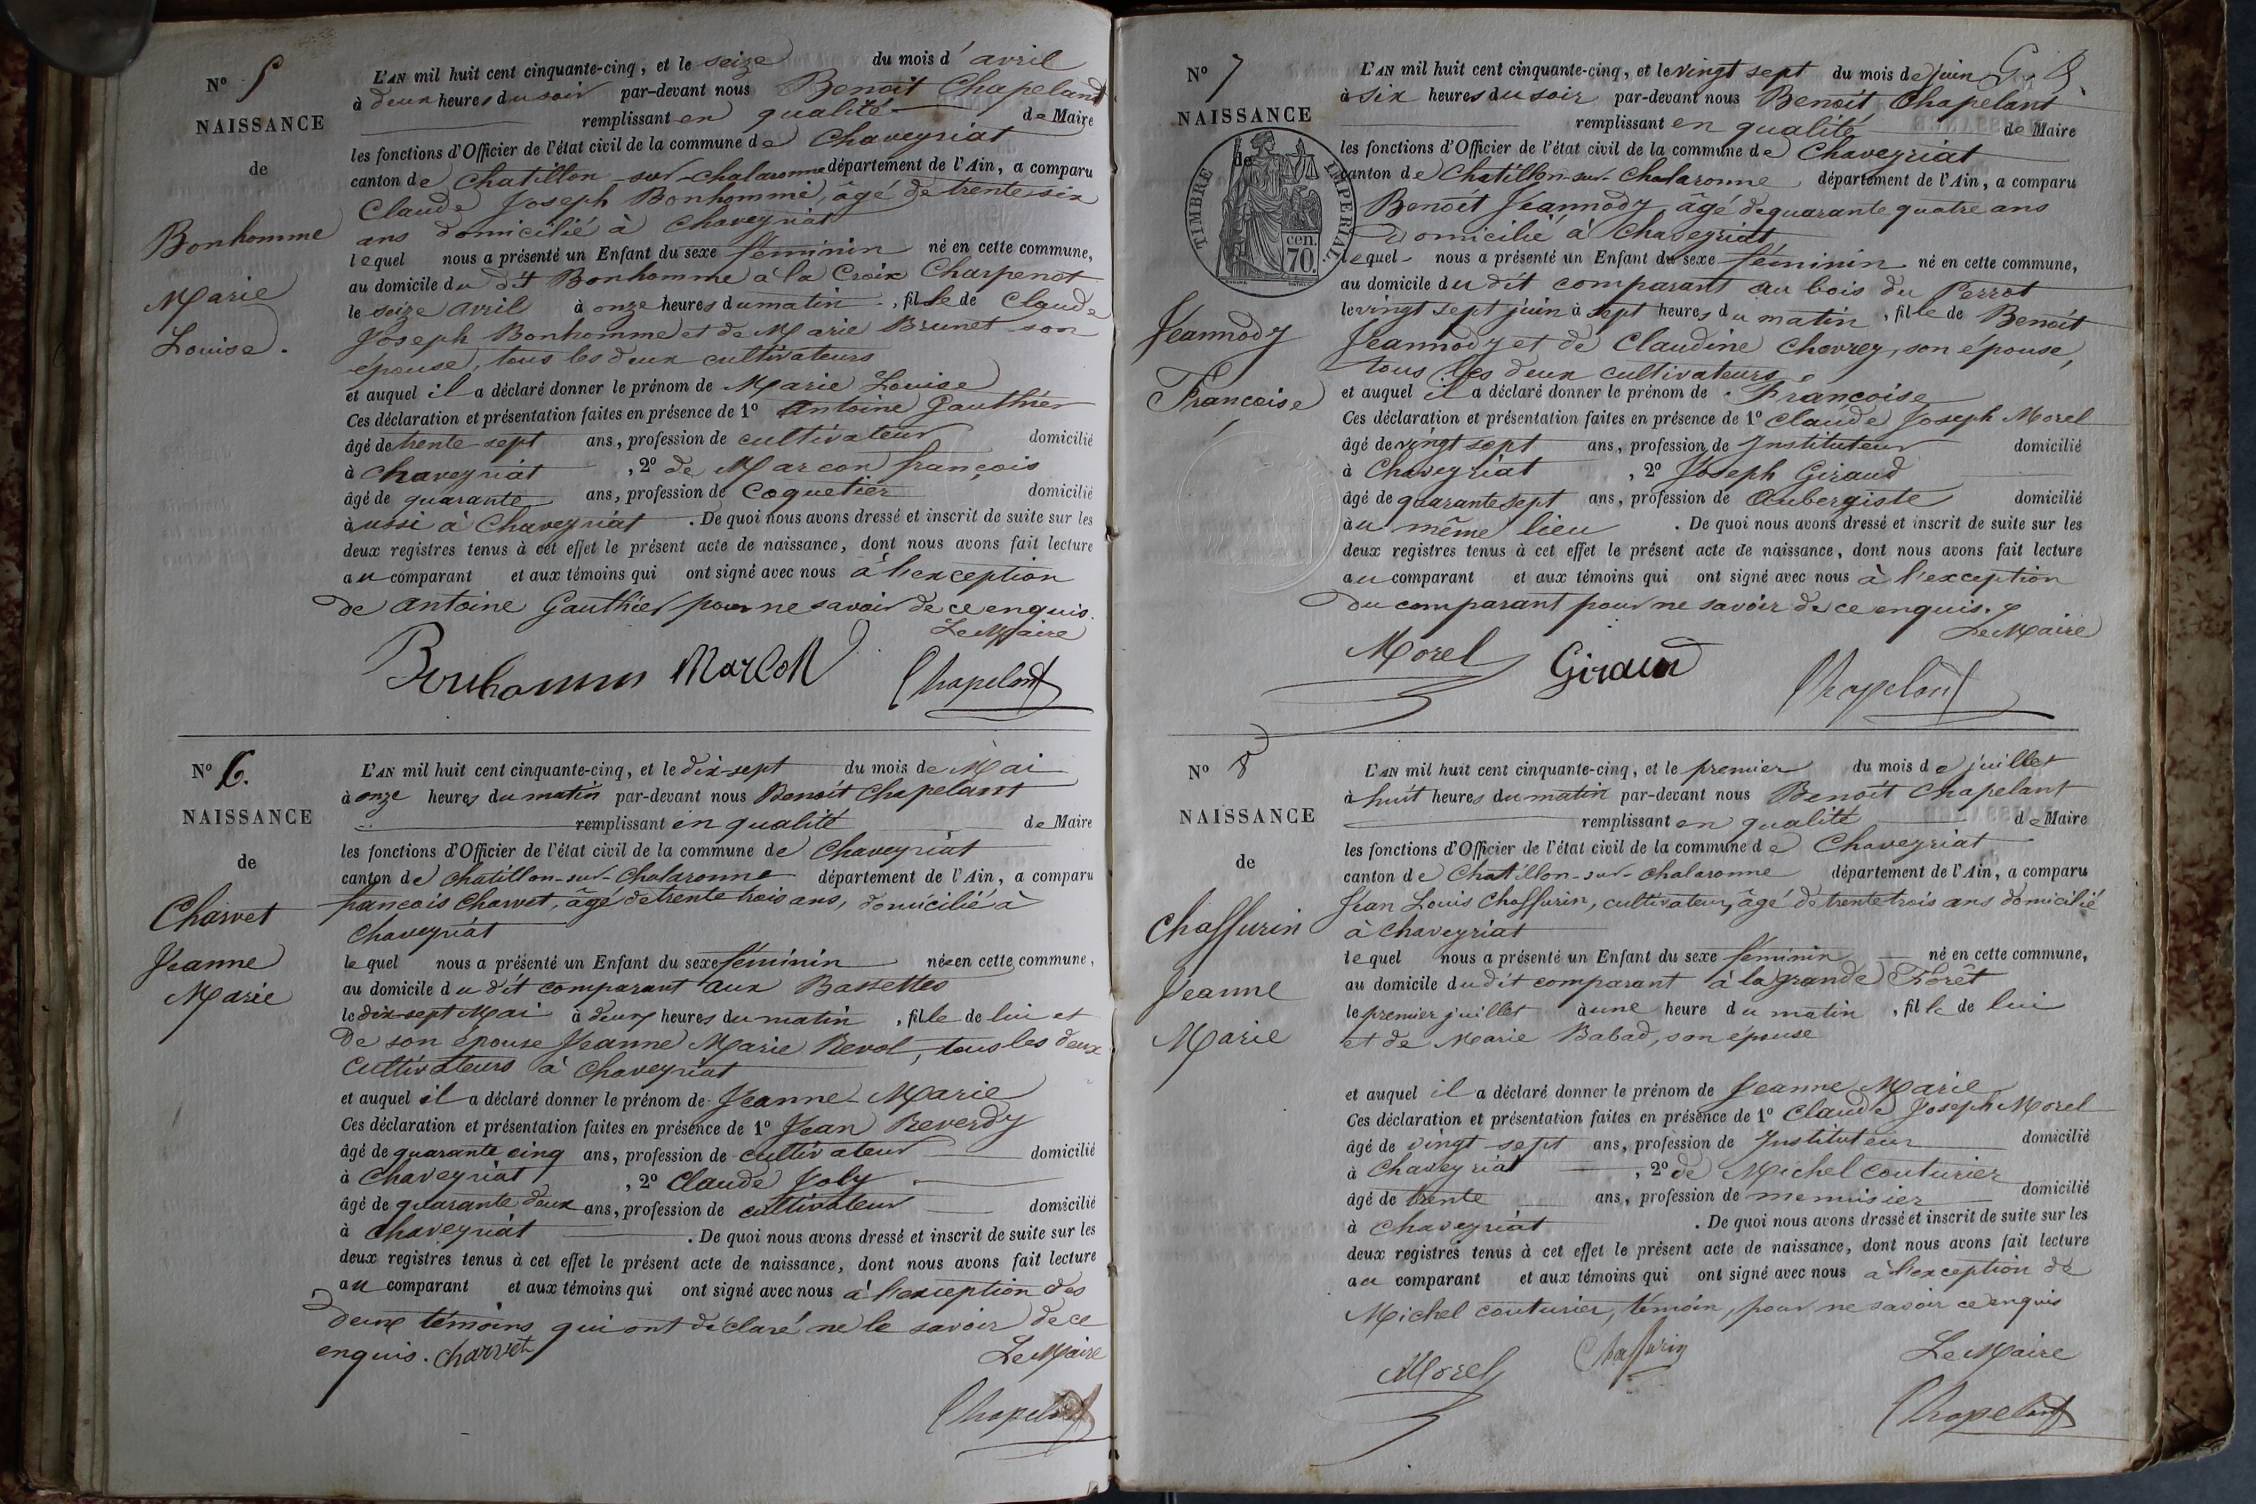 N° 5
NAISSANCE
de
Bonhomme
Marie
Louise.
L'AN mil huit cent cinquante-cinq, et le seize du mois d'avril
à deux heures du soir par-devant nous Benoit Chapeland
remplissant en qualité de Maire
les fonctions d'Officier de l'état civil de la commune de Chaveyriat
canton de Chatillon-sur-Chalaronne département de l'Ain, a comparu
Claude Joseph Bonhomme, âgé de trente six
ans domicilié à Chaveyriat
lequel nous a présenté un Enfant du sexe féminin né en cette commune,
au domicile du dit Bonhomme à la Croix Charpenot
le seize avril à onze heures du matin, fille de Claude
Joseph Bonhomme et de Marie Brunet son
épouse, tous les deux cultivateurs
et auquel il a déclaré donner le prénom de Marie Louise
Ces déclaration et présentation faites en présence de 1° Antoine Gauthier
âgé de trente-sept ans, profession de cultivateur domicilié
à Chaveyriat, 2° de Marcon françois
âgé de quarante ans, profession de Coquetier domicilié
aussi à Chaveyriat. De quoi nous avons dressé et inscrit de suite sur les
deux registres tenus à cet effet le présent acte de naissance, dont nous avons fait lecture
au comparant et aux témoins qui ont signé avec nous à l'exception
de Antoine Gauthier pour ne savoir de ce enquis.
Le Maire
Bonhomme Marcon Chapelant
N° 6.
NAISSANCE
de
Charvet
Jeanne
Marie
L'AN mil huit cent cinquante-cinq, et le dix-sept du mois de Mai
à onze heures du matin par-devant nous Benoit Chapelant
remplissant en qualité de Maire
les fonctions d'Officier de l'état civil de la commune de Chaveyriat
canton de Chatillon-sur-Chalaronne département de l'Ain, a comparu
françois Charvet, âgé de trente trois ans, domicilié à
Chaveyriat
lequel nous a présenté un Enfant du sexe féminin née en cette commune,
au domicile du dit comparant aux Bassettes
le dix-sept Mai à deux heures du matin, fille de lui et
de son épouse Jeanne Marie Revol, tous les deux
cultivateurs à Chaveyriat
et auquel il a déclaré donner le prénom de Jeanne Marie
Ces déclaration et présentation faites en présence de 1° Jean Reverdy
âgé de quarante cinq ans, profession de cultivateur domicilié
à Chaveyriat, 2° Claude Joly
âgé de quarante deux ans, profession de cultivateur domicilié
à Chaveyriat. De quoi nous avons dressé et inscrit de suite sur les
deux registres tenus à cet effet le présent acte de naissance, dont nous avons fait lecture
au comparant et aux témoins qui ont signé avec nous à l'exception des
deux témoins qui ont déclaré ne le savoir de ce
enquis. Charvet Le Maire
Chapelant
N° 7
NAISSANCE
de
TIMBRE IMPERIAL
cen.
70.
Jeannody
Françoise
L'AN mil huit cent cinquante-cinq, et le vingt sept du mois de juin
à six heures du soir par-devant nous Benoit Chapelant
remplissant en qualité de Maire
les fonctions d'Officier de l'état civil de la commune de Chaveyriat
canton de Chatillon-sur-Chalaronne, département de l'Ain, a comparu
Benoit Jeannody, âgé de quarante quatre ans
domicilié à Chaveyriat
lequel nous a présenté un Enfant du sexe féminin né en cette commune,
au domicile du dit comparant au bois du Perrot
le vingt sept juin à sept heures du matin, fille de Benoit
Jeannody et de Claudine Chevrey, son épouse,
tous les deux cultivateurs
et auquel il a déclaré donner le prénom de Françoise
Ces déclaration et présentation faites en présence de 1° Claude Joseph Morel
âgé de vingt sept ans, profession de Instituteur domicilié
à Chaveyriat, 2° Joseph Giraud
âgé de quarante sept ans, profession de Aubergiste domicilié
au même lieu. De quoi nous avons dressé et inscrit de suite sur les
deux registres tenus à cet effet le présent acte de naissance, dont nous avons fait lecture
au comparant et aux témoins qui ont signé avec nous à l'exception
du comparant pour ne savoir de ce enquis.
Le Maire
Morel Giraud Chapelant
N° 8
NAISSANCE
de
Chaffurin
Jeanne
Marie
L'AN mil huit cent cinquante-cinq, et le premier du mois de juillet
à huit heures du matin par-devant nous Benoit Chapelant
remplissant en qualité de Maire
les fonctions d'Officier de l'état civil de la commune de Chaveyriat
canton de Chatillon-sur-Chalaronne département de l'Ain, a comparu
Jean Louis Chaffurin, cultivateur, âgé de trente trois ans domicilié
à Chaveyriat
lequel nous a présenté un Enfant du sexe féminin né en cette commune,
au domicile du dit comparant à la grande Forêt
le premier juillet à une heure du matin, fille de lui
et de Marie Babad, son épouse
et auquel il a déclaré donner le prénom de Jeanne Marie
Ces déclaration et présentation faites en présence de 1° Claude Joseph Morel
âgé de vingt-sept ans, profession de Instituteur domicilié
à Chaveyriat, 2° de Michel Couturier
âgé de trente ans, profession de menuisier domicilié
à Chaveyriat. De quoi nous avons dressé et inscrit de suite sur les
deux registres tenus à cet effet le présent acte de naissance, dont nous avons fait lecture
au comparant et aux témoins qui ont signé avec nous à l'exception de
Michel Couturier, témoin, pour ne savoir ce enquis
Le Maire
Morel Chaffurin
Chapelant